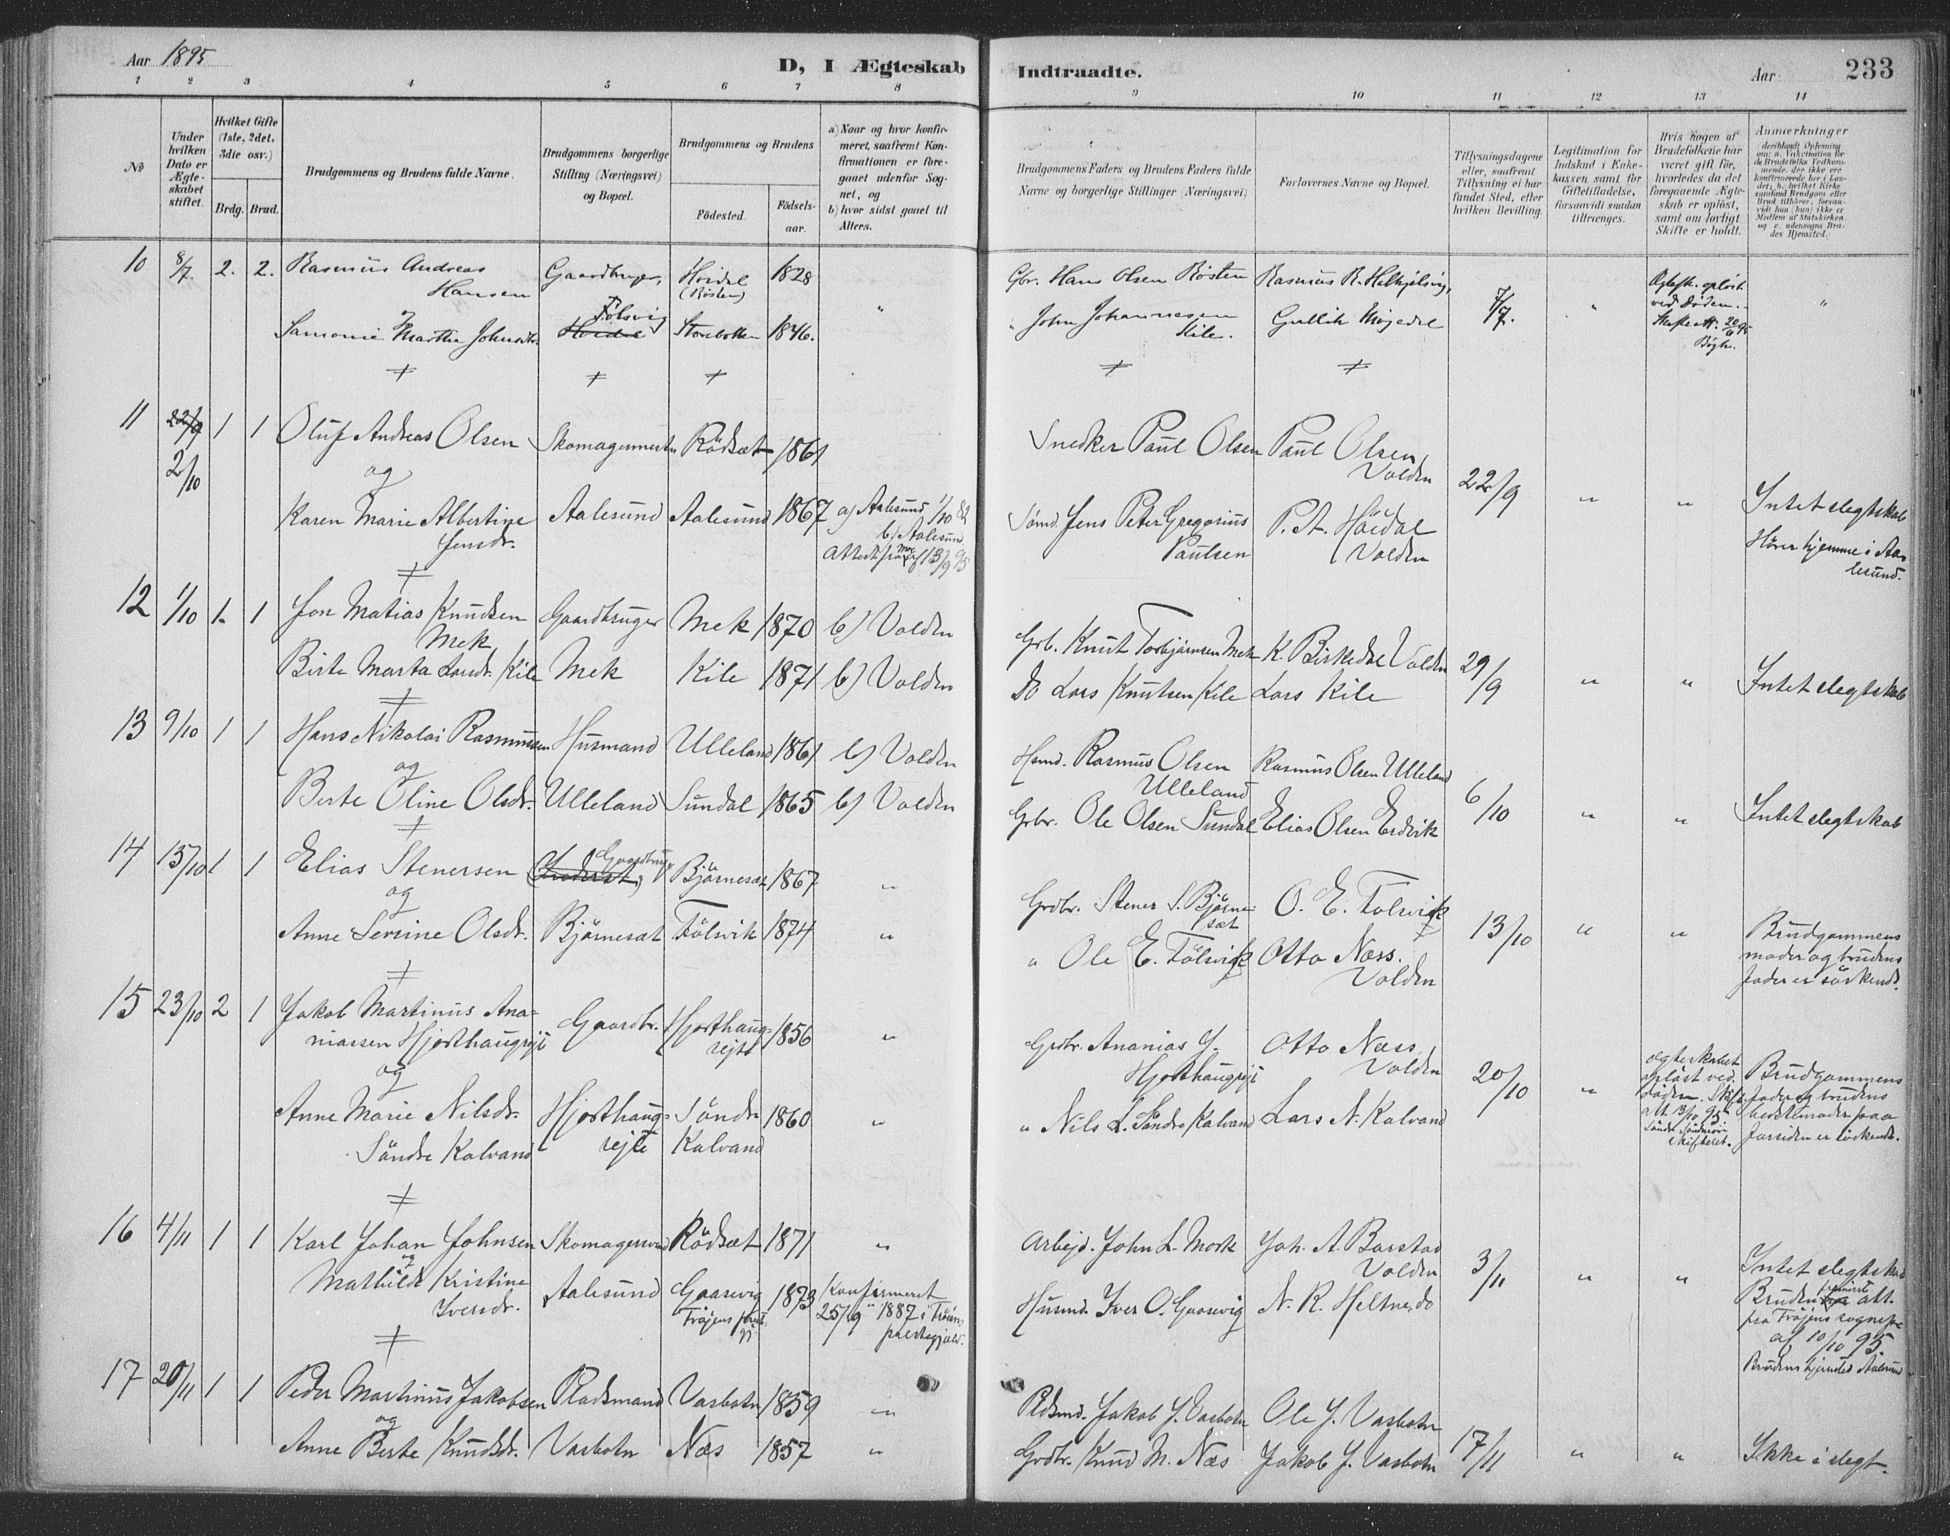 Aar 1895
D, I Ægteskab Indtraadte.
Aar
233
1 2 3 4 5 6 7 8 9 10 11 12 13 14
No
Under hvilken Dato er Ægteskabet stiftet.
Hvilket Gifte (1ste, 2det, 3die osv.)
Brdg. Brud.
Brudgommens og Brudens fulde Navne.
Brudgommens borgerlige Stilling (Næringsvei) og Bopæl.
Brudgommens og Brudens
Födested.
Födselsaar.
a) Naar og hvor konfirmeret, saafremt Konfirmationen er foregaaet udenfor Sognet, og
b) hvor sidst gaaet til Alters.
Brudgommens Faders og Brudens Faders fulde Navne og borgerlige Stillinger (Næringsvei)
Forlovernes Navne og Bopæl.
Tillysningsdagene eller, saafremt Tillysning ei har fundet Sted, efter hvilken Bevilling.
Legitimation for Indskud i Enkekassen samt for Giftetilladelse, forsaavidt saadan tiltrænges.
Hvis Nogen af Brudefolkene har været gift før, hvorledes da det foregaaende Ægteskab er opløst, samt om lovligt Skifte er holdt.
Anmærkninger
10 8/7. 2. 2. Rasmus Andreas Hansen Gaardbruger, Hovdal (Røsten) 1828 Gbr. Hans Olsen Røsten Rasmus R. Helkjelsvig,
og
Samonie Martha Johnsdtr. Folsvig Storebotten 1846. " " John Johannesen Kile. Gullik Mojedal 7/7. " "
ved Døden.
11 22/9 2/10 1 1 Oluf Andreas Olsen Skomagermester Rödsæt 1861 Snedker Paul Olsen Paul Olsen Volden
og
Karen Marie Albertine Jensdr. Aalesund Aalesund 1867 a) Aalesund 1/10 82 b) Aalesund Sømd. Jens Peter Gregorius Paulsen P. A. Höidal Volden 22/9 " " Intet slegtskab
Hører hjemme i Aalesund.
12 1/10 1 1 Jon Matias Knudsen Mek Gaardbruger Mek 1870 b) Volden Grb. Knut Torbjørnsen Mek K. Birkedal Volden
Birte Marta Larsdr. Kile Mek Kile 1871 b) Volden Do Lars Knutsen Kile Lars Kile 29/9 " " Intet slegtskab
13 9/10 1 1 Hans Nikolai Rasmussen Husmand Ulleland 1861 b) Volden Hsmd. Rasmus Olsen Ulleland Rasmus Olsen Ulleland
og
Berte Oline Olsdr. Ulleland Sundal 1865 b) Volden Grbr. Ole Olsen Sundal Elias Olsen Endvik 6/10 " " Intet slegtskab
14 15/10 1 1 Elias Stenersen Gaardbruger Björnesæt 1867 " Grdbr. Stener S. Björnesæt O. E. Folsvik
og
Anne Serine Olsdr. Björnesæt Fölsvik 1874 " " Ole E. Fölsvik Otto Næss. Volden 13/10 " " Brudgommens moder og brudens fader er sörkendt.
15 23/10 2 1 Jakob Martinus Ananiassen Hjorthaugrejt Gaardbr. Hjorthaugrejte 1856 " Grdbr. Ananias J. Hjorthaugrejt Otto Næss Volden
og
Anne Marie Nilsdr. Söndre Kalvand Hjorthaugrejte Söndre Kalvand 1860 " " Nils L. Söndre Kalvand Lars N. Kalvand 20/10 " ægteskabet oplöst ved döden. Brudgommens fader og brudens bedstemoder paa farsiden er sörkendt.
16 4/11 1 1 Karl Johan Johnsen Skomagersvend Rödsæt 1871 " Arbejd. John L. Mork Joh. A. Barstad Volden
og
Mathilde Kristine Iversdr. Aalesund Gaasevig Tröjens 1873 Konfirmeret 25/9 1887 i Tröiens præstegjeld. Husmd. Iver O. Gaasevig N. R. Heltne, do 3/11 " " Intet slegtskab
Bruden att. fra Tröjens sognepr. af 10/10 95.
Brudens hjemsted Aalesund
17 20/11 1 1 Peder Martinus Jakobsen Pladsmand Vasbotn 1859 " Pldsmd. Jakob J. Vasbotn Ole J. Vasbotn
og
Anne Berte Knudsdr. Vasbotn Næs 1857 " Grdbr. Knud M. Næs Jakob J. Vasbotn 17/11 " " Ikke i slegt.